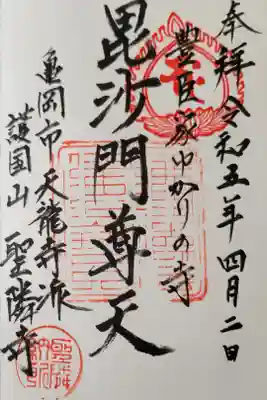 奉拝 令和五年四月二日
豊臣家ゆかりの寺
毘沙門尊天
亀岡市 天龍寺派
護国山 聖隣寺